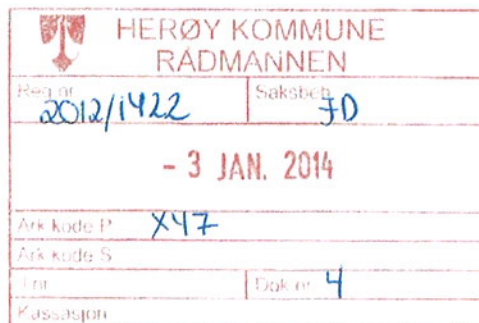 HERØY KOMMUNE
RÅDMANNEN
Reg.nr. Saksbeh.
2012/1422 JD
- 3 JAN. 2014
Ark.kode P X47
Ark.kode S
J.nr. Dok.nr. 4
Kassasjon